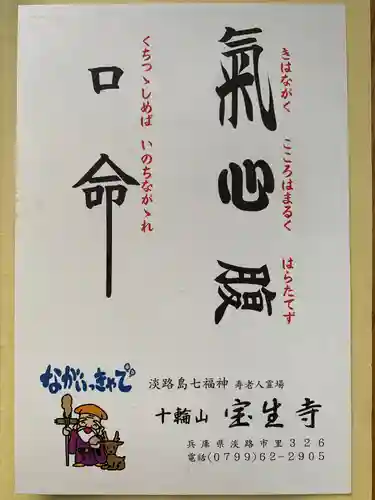 氣心腹
きはながく こころはまるく はらたてず
口命
くちつゝしめば いのちながゝれ
ながいっきゃで
淡路島七福神 寿老人霊場
十輪山 宝生寺
兵庫県淡路市里326
電話(0799)62-2905